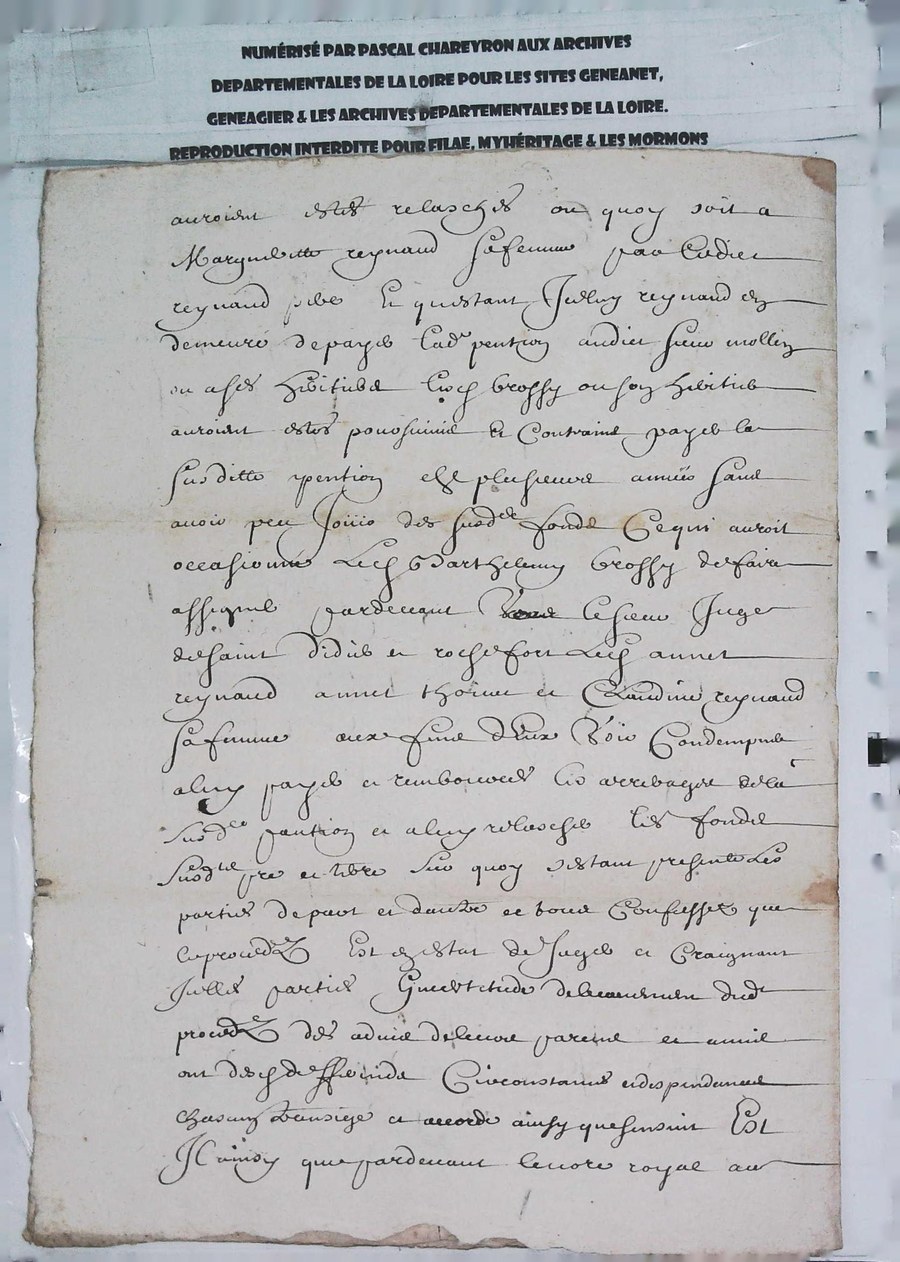 NUMÉRISÉ PAR PASCAL CHAREYRON AUX ARCHIVES
DEPARTEMENTALES DE LA LOIRE POUR LES SITES GENEANET,
GENEAGIER & LES ARCHIVES DEPARTEMENTALES DE LA LOIRE.
REPRODUCTION INTERDITE POUR FILAE, MYHÉRITAGE & LES MORMONS
auroient estes relaschés ou quoy soit a
reynaud sa femme par ledict
reynaud pere Et questant Icelluy reynaud en
demeure de payer lad^e pention audict sieur mollin
ou a ses heritiers brossy ou son heritier
auroient estes poursuivis et Contraint payer la
susditte pention plusieurs années sans
avoir peu Jouir des susd^es fonds Ce qui auroit
occasionné Barthelemy brossy de faire
assigner pardevant le sieur Juge
de saint Didier et rochefort annet
reynaud annet et Claudine reynaud
sa femme aux fins d'Eux Voir Condempner
a luy payer et rembourcer les arrerages de la
susd^e pantion et a luy relascher les fonds
susd^es pre et terre sur quoy sestant presenté Les
parties de part et dautre et Confesser que
le proced Est en estat de Juger et Craignant
Icelles parties levenement dud^t
proced des advis de leurs parens et amis
ont Circonstances et dependances
transigé et accordé ainsy que sensuit Est
Il ainsy que pardevant le no^re royal au